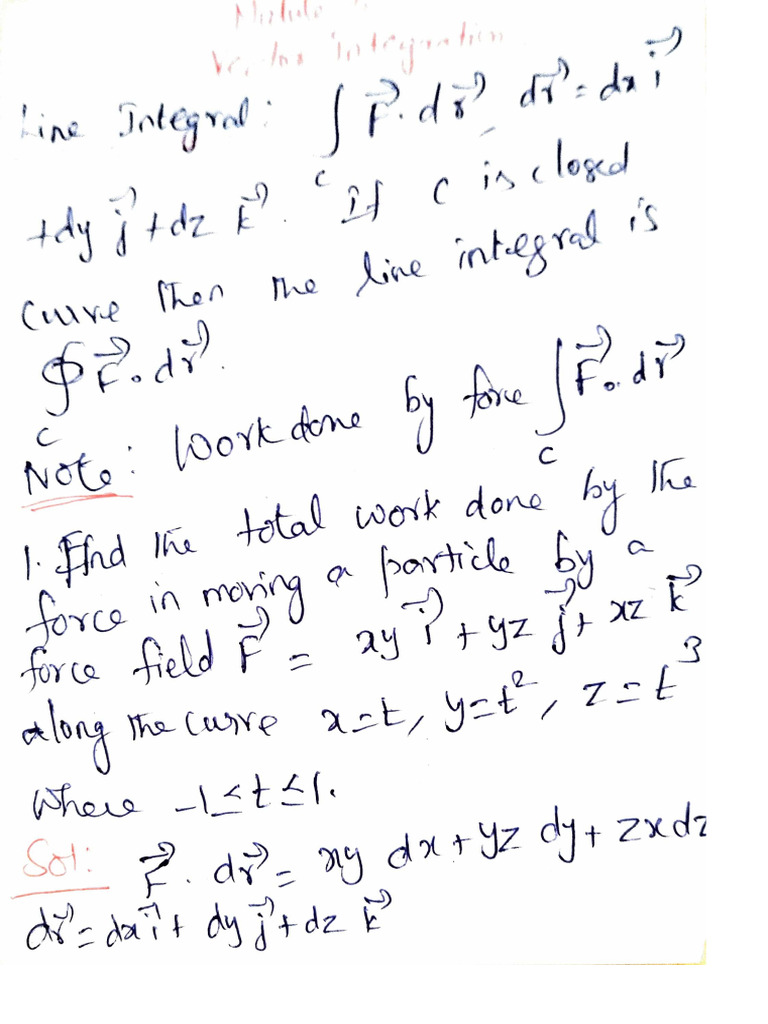 Module
Vector Integration
Line Integral: ∫_C F⃗. dr⃗, dr⃗ = dx i⃗
+dy j⃗ + dz k⃗. If C is closed
curve then the line integral is
∮_C F⃗. dr⃗.
Note: Work done by force ∫_C F⃗. dr⃗
1. Find the total work done by the
force in moving a particle by a
force field F⃗ = xy i⃗ + yz j⃗ + xz k⃗
along the curve x=t, y=t², z=t³
where -1≤t≤1.
Sol: F⃗. dr⃗ = xy dx + yz dy + zx dz
dr⃗ = dx i⃗ + dy j⃗ + dz k⃗